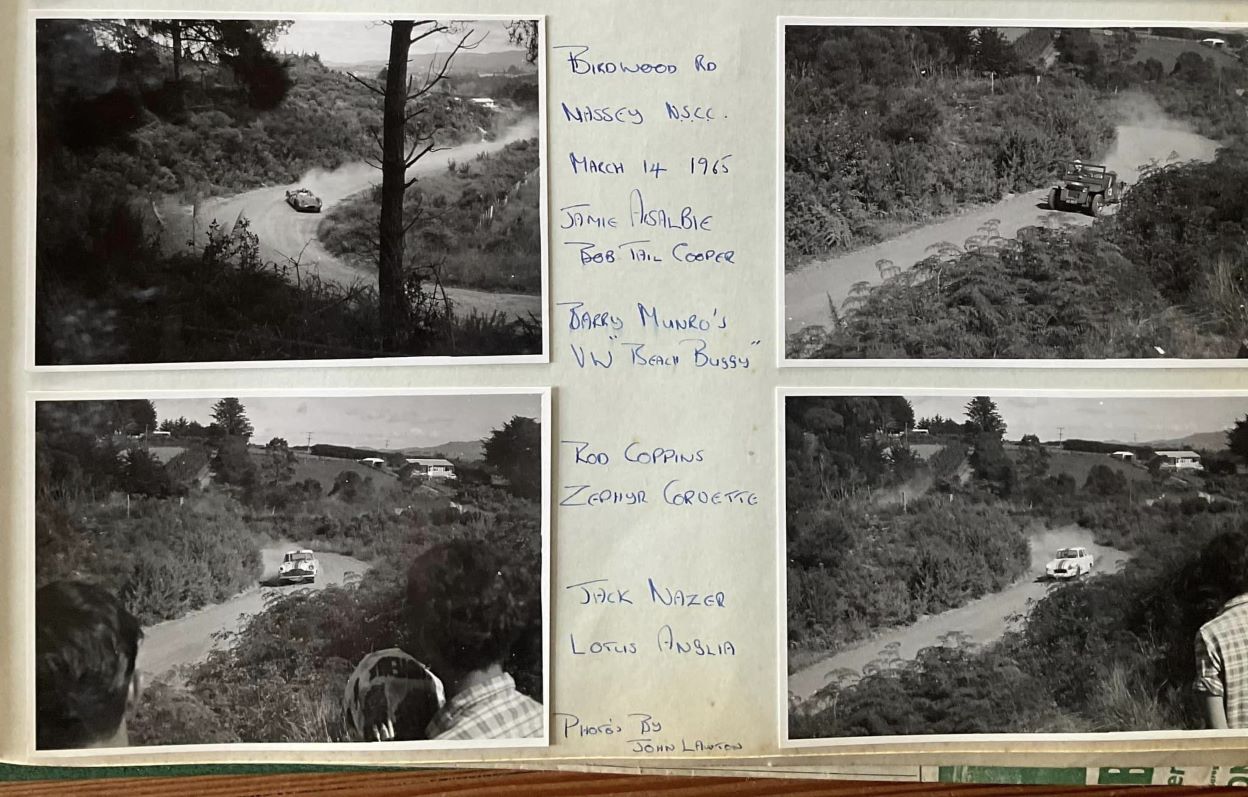 BIRDWOOD RD
MASSEY N.S.C.C.
MARCH 14 1965
JAMIE
BOB TAIL COOPER
BARRY MUNRO'S
VW "BEACH BUGGY"
ROD COPPINS
ZEPHYR CORVETTE
JACK NAZER
LOTUS ANGLIA
PHOTO'S BY
JOHN LAWTON